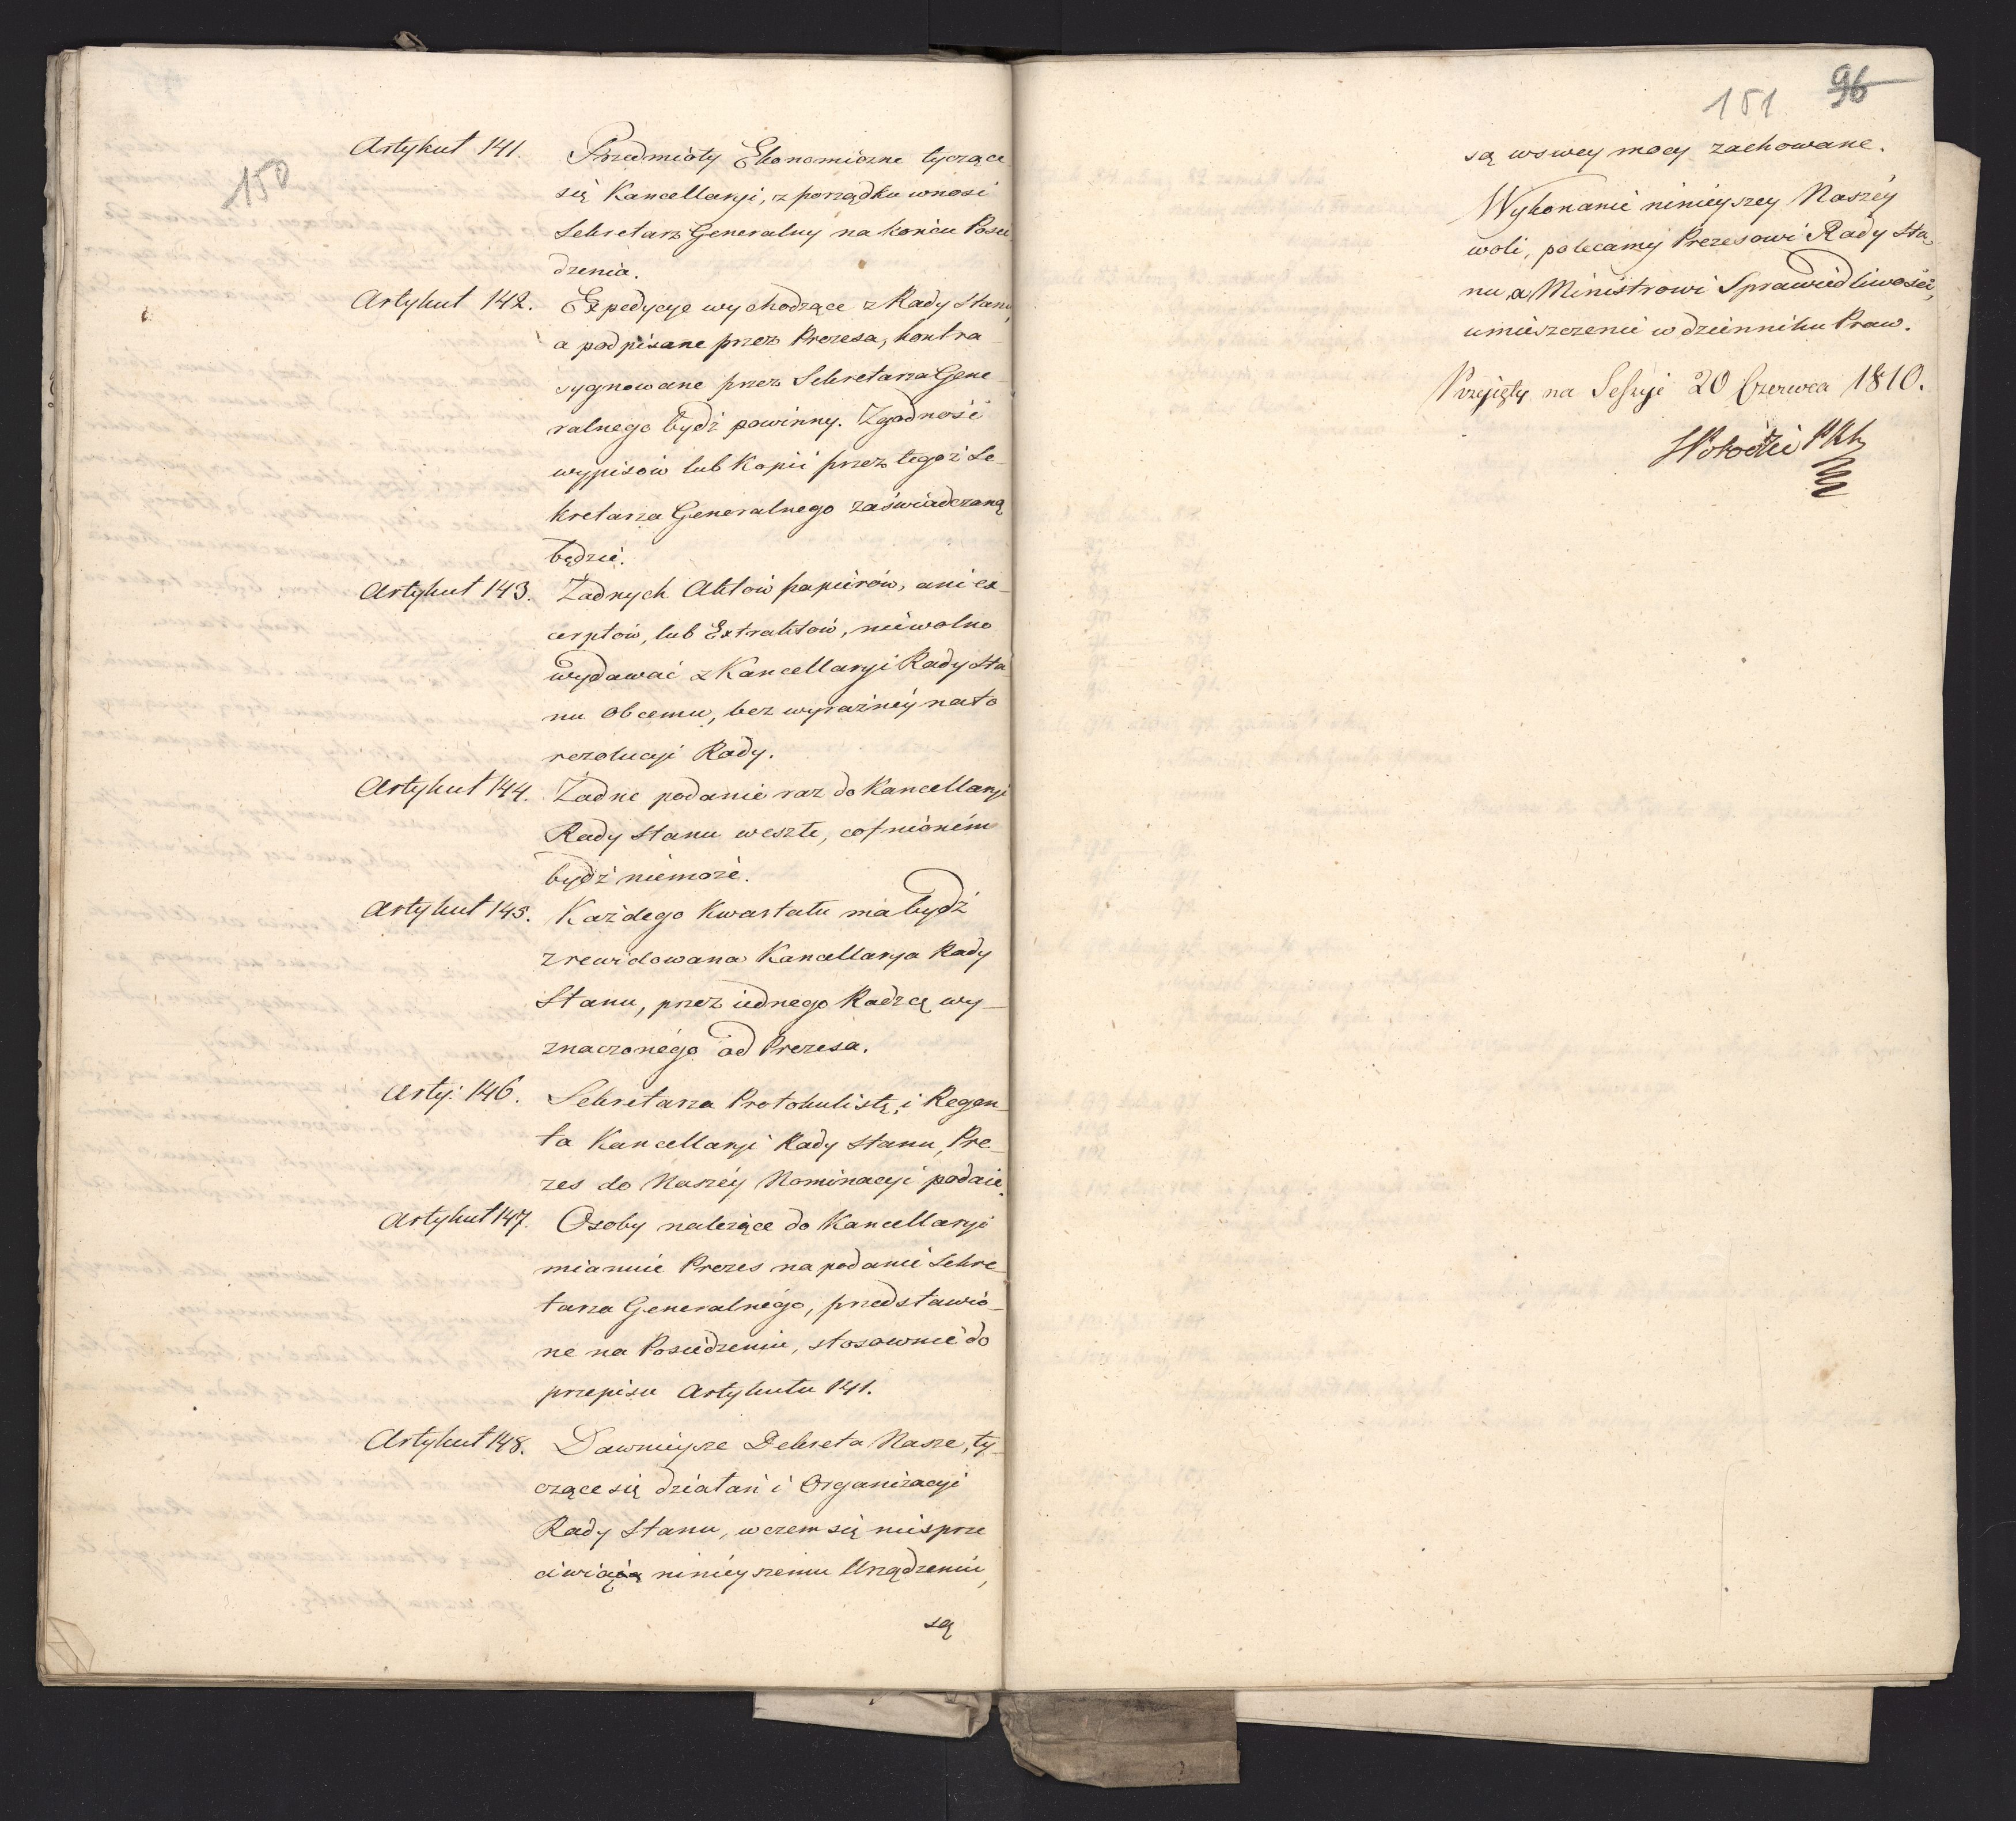 150
Artykuł 141. Przedmioty Ekonomiczne tyczące
się Kancellaryi, z porządku wnosi
Sekretarz Generalny na końcu Posie
dzenia.
Artykuł 142. Expedycye wychodzące z Rady Stanu,
a podpisane przez Prezesa, kontra
sygnowane przez Sekretarza Gene
ralnego bydź powinny. Zgodność
wypisów lub Kopii przez tegoż Se
kretarza Generalnego zaświadczoną
będzie.
Artykuł 143. Żadnych Aktów papierów, ani ex
cerptów, lub Extraktów, niewolno
wydawać z Kancellaryi Rady Sta
nu obcemu, bez wyraźnéy nato
rezolucyi Rady.
Artykuł 144. Żadne podanie raz do Kancellaryi
Rady Stanu weszłe, cofnioném
bydź niemoże.
Artykuł 145. Każdego Kwartału ma bydź
zrewidowana Kancellarya Rady
Stanu, przez iednego Radzcę wy_
znaczonégo od Prezesa.
Arty: 146. Sekretarza Protokulistę, i Regen_
ta Kancellaryi Rady Stanu, Pre_
zes do Naszéy Nominacyi podaie.
Artykuł 147. Osoby należące do Kancellaryi
mianuie Prezes na podanie Sekre_
tarza Generalnégo, przedstawio_
ne na Posiedzeniu, stosownie do
przepisu Artykułu 141.
Artykuł 148. Dawnieysze Dekreta Nasze, ty_
czące się działań i Organizacyi
Rady Stanu, w czem się niesprze
ciwiaią ninieyszemu Urządzeniu,
są
151 96
są wswey mocy zachowane.
Wykonanie ninieyszey Naszéy
woli, polecamy Prezesowi Rady Sta_
nu, a Ministrowi Sprawiedliwości,
umieszczenie w dzienniku Praw.
Przyięty na Sessyi 20 Czerwca 1810.